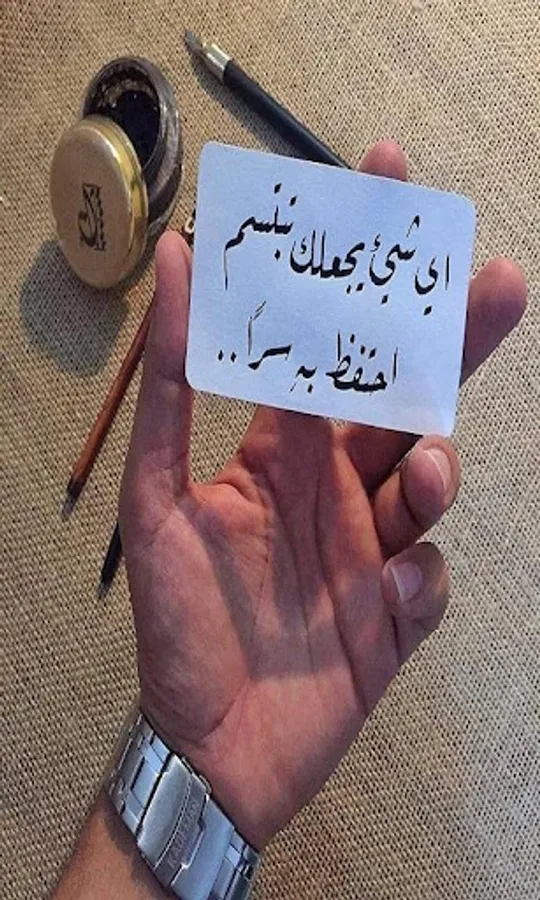 اي شيئ يجعلك تبتسم
احتفظ به سراً ..